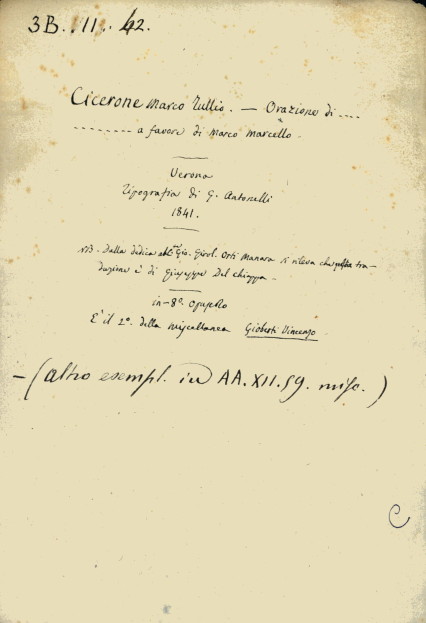 3B. .11. .42.
Cicerone Marco Tullio. — Orazione di ....
........ a favore di Marco Marcello.
Verona
Tipografia di G. Antonelli
1841.
NB. Dalla dedica al Gio. Girol. Orti Manara si rileva che questa tra-
duzione è di Giuseppe Del Chiappa.
in-8º. Opuscolo
E' il 2º. della miscellanea Gioberti Vincenzo.
— (altro esempl. in AA. XII. 59. misc.)
C